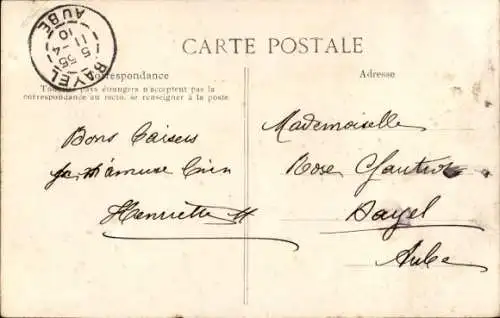 BAYEL
AUBE
5 35
11 -4
10
CARTE POSTALE
Correspondance
Tous les pays étrangers n'acceptent pas la
correspondance au recto, se renseigner à la poste.
Adresse
Bons baisers
je m'amuse bien
Henriette H
Mademoiselle
Rose
Bayel
Aube